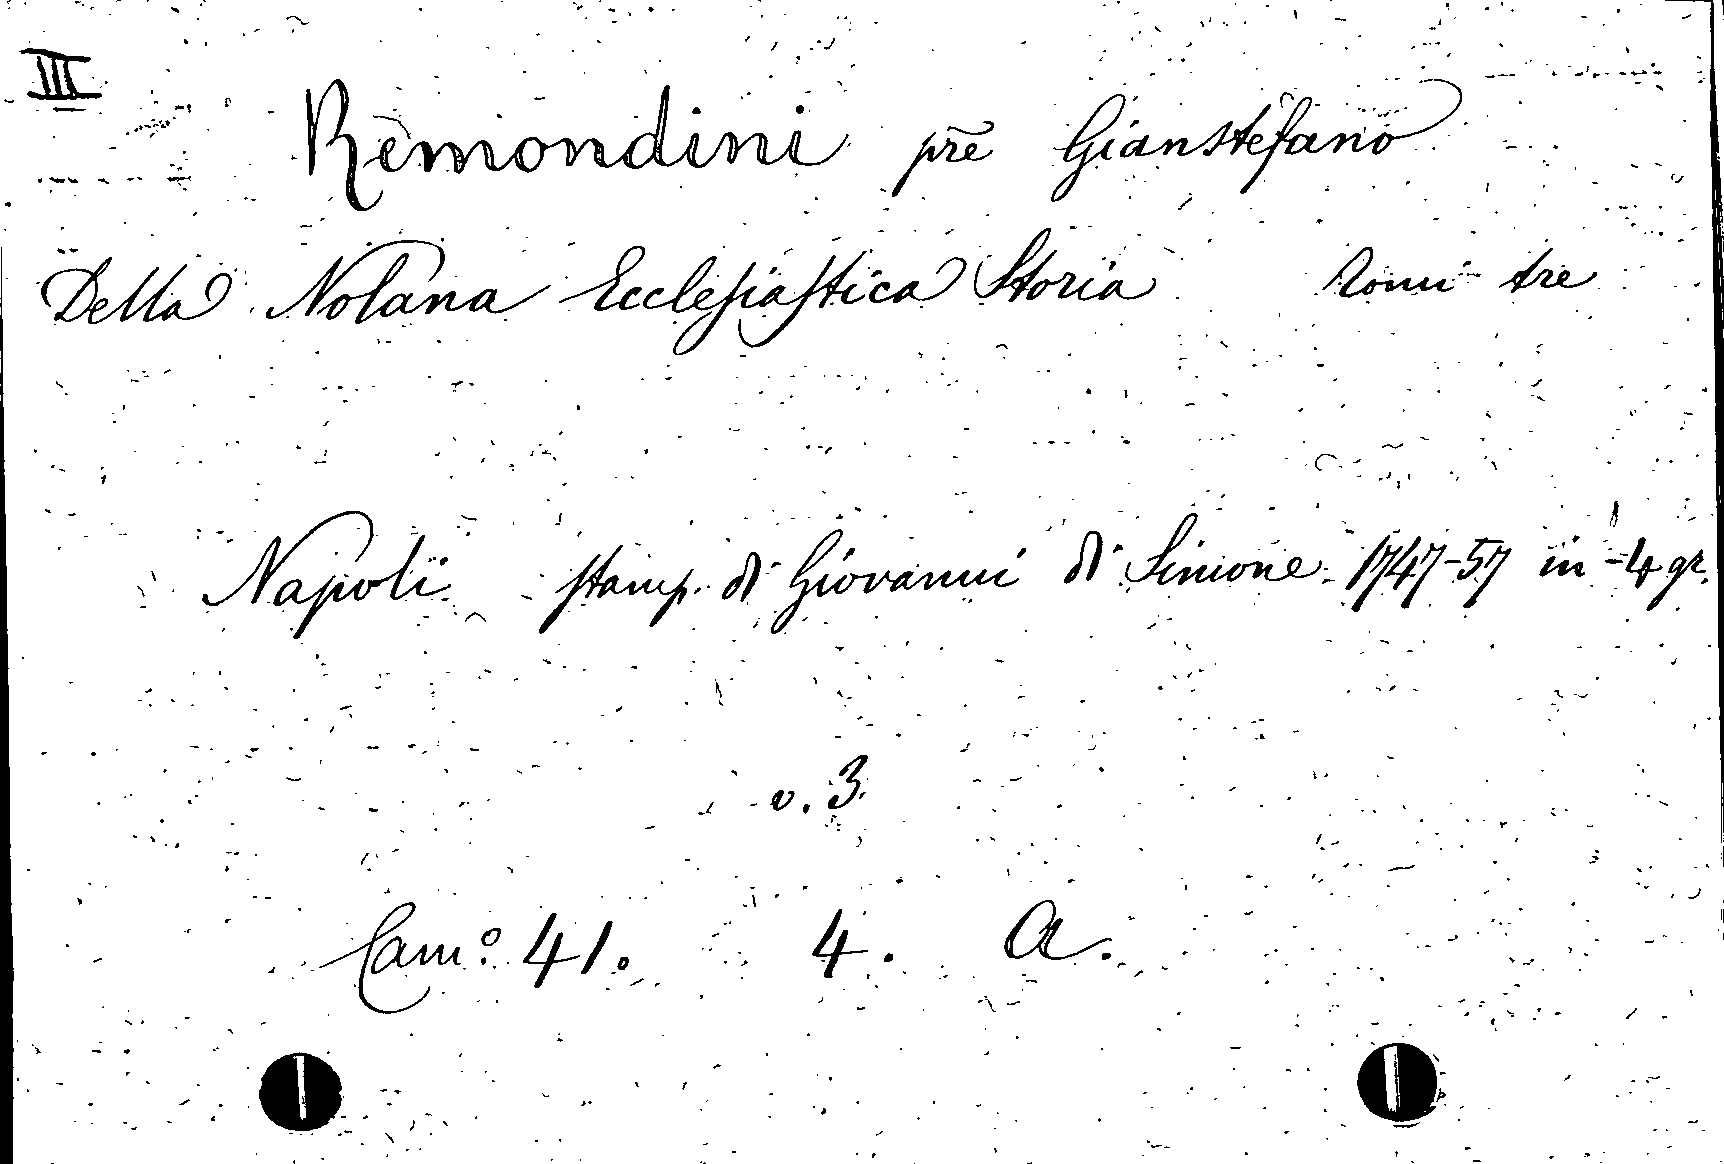 III
Remondini pre Gianstefano
Della Nolana Ecclesiastica Storia Tomi tre
Napoli stamp. di Giovanni di Simone 1747-57 in 4 gr.
v. 3.
Cam.o 41. 4. A.